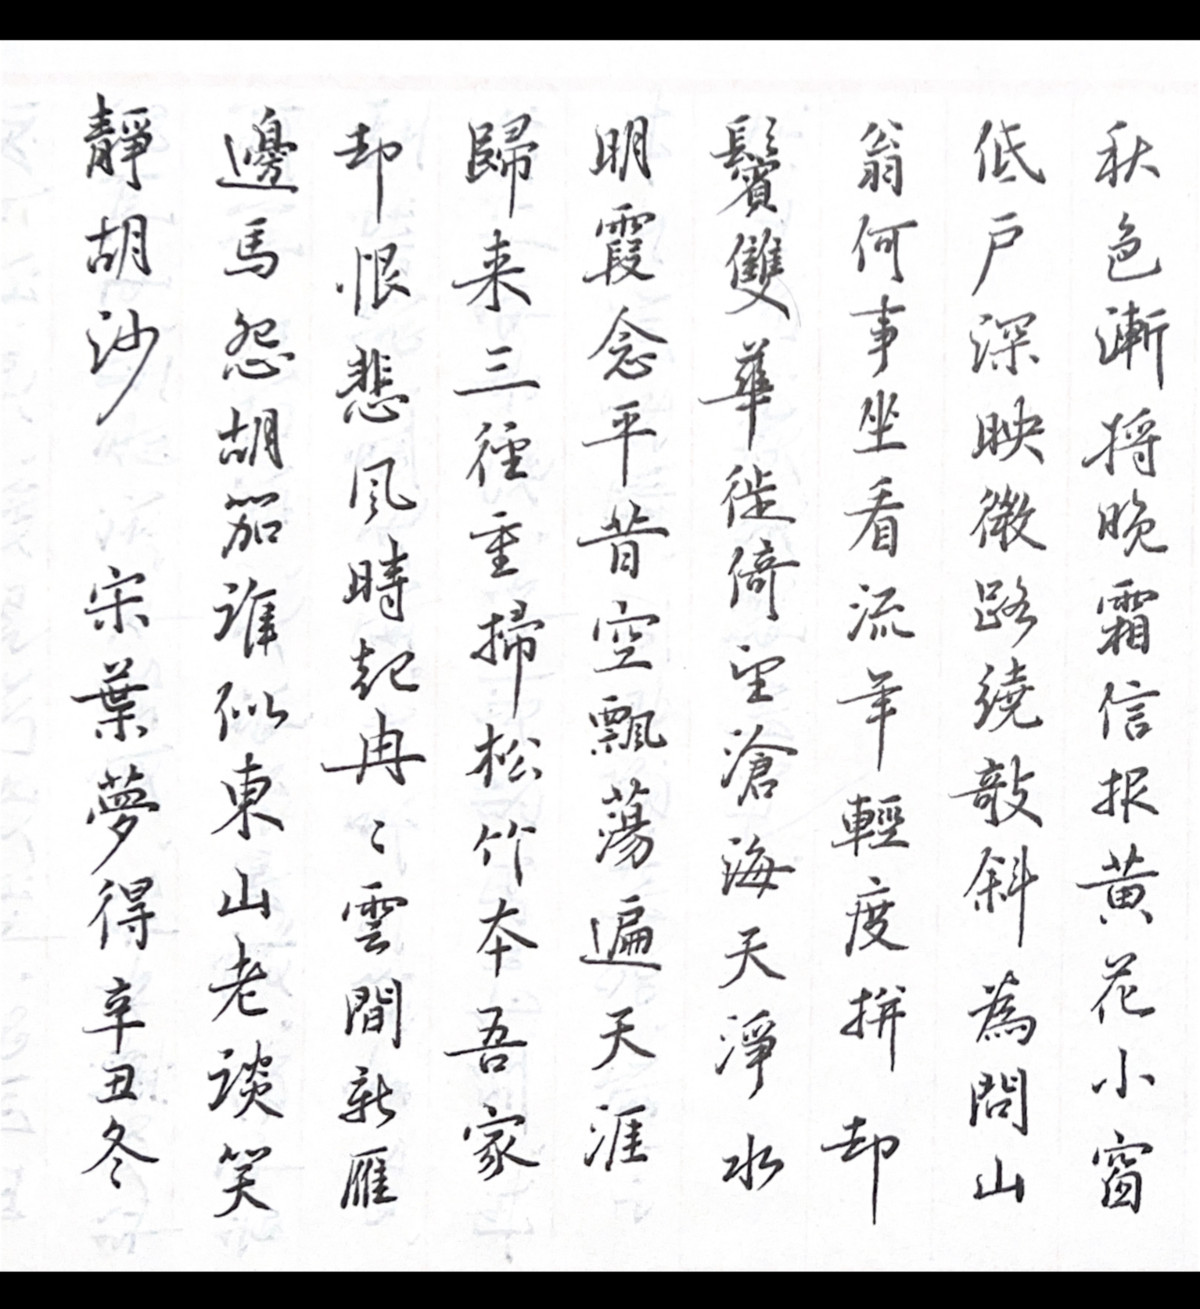 秋色漸將晚霜信报黄花小窗
低戶深映微路繞敧斜為問山
翁何事坐看流年輕度拚却
鬢雙華徙倚望滄海天淨水
明霞念平昔空飄蕩遍天涯
歸来三徑重掃松竹本吾家
却恨悲風時起冉〻雲間新雁
邊馬怨胡笳誰似東山老談笑
靜胡沙 宋葉夢得辛丑冬